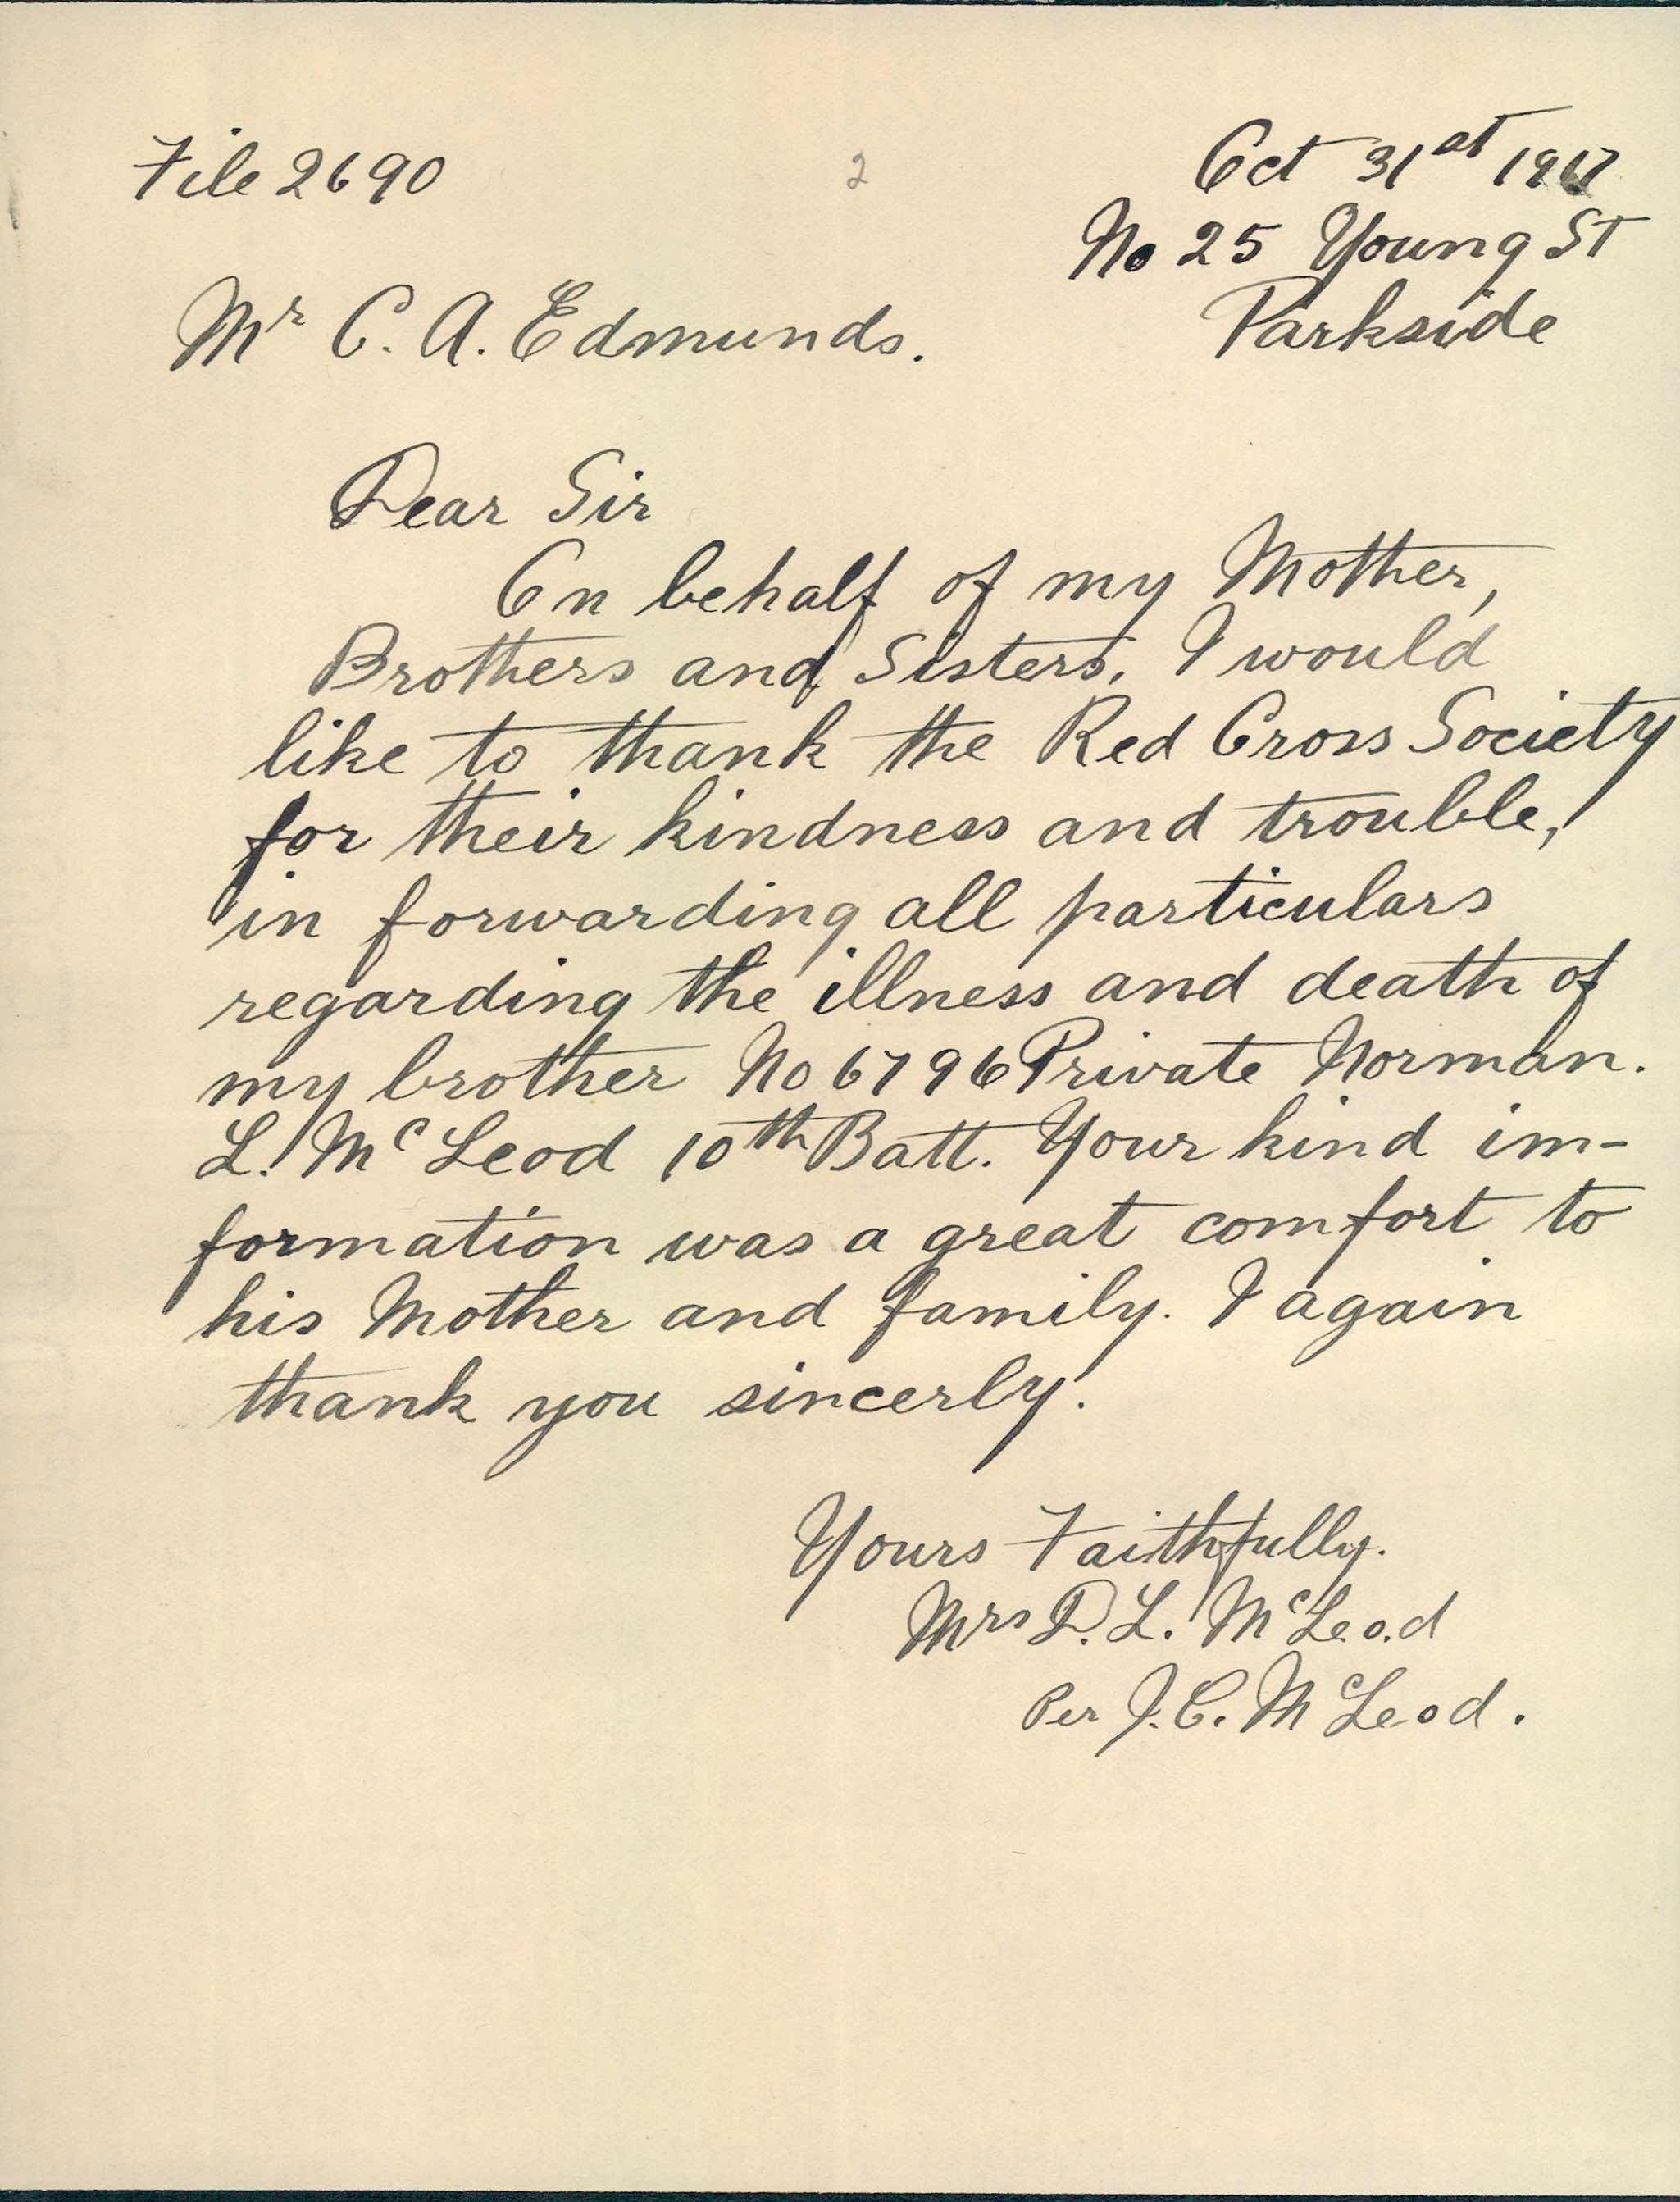 File 2690
2
Oct 31st 1917
No 25 Young St
Parkside
Mr C. A. Edmunds.
Dear Sir
On behalf of my Mother,
Brothers and Sisters, I would
like to thank the Red Cross Society
for their kindness and trouble,
in forwarding all particulars
regarding the illness and death of
my brother No 6796 Private Norman.
L. McLeod 10th Batt. Your kind im-
formation was a great comfort to
his Mother and family. I again
thank you sincerly.
Yours Faithfully.
Mrs D. L. McLeod
Per J. C. McLeod.